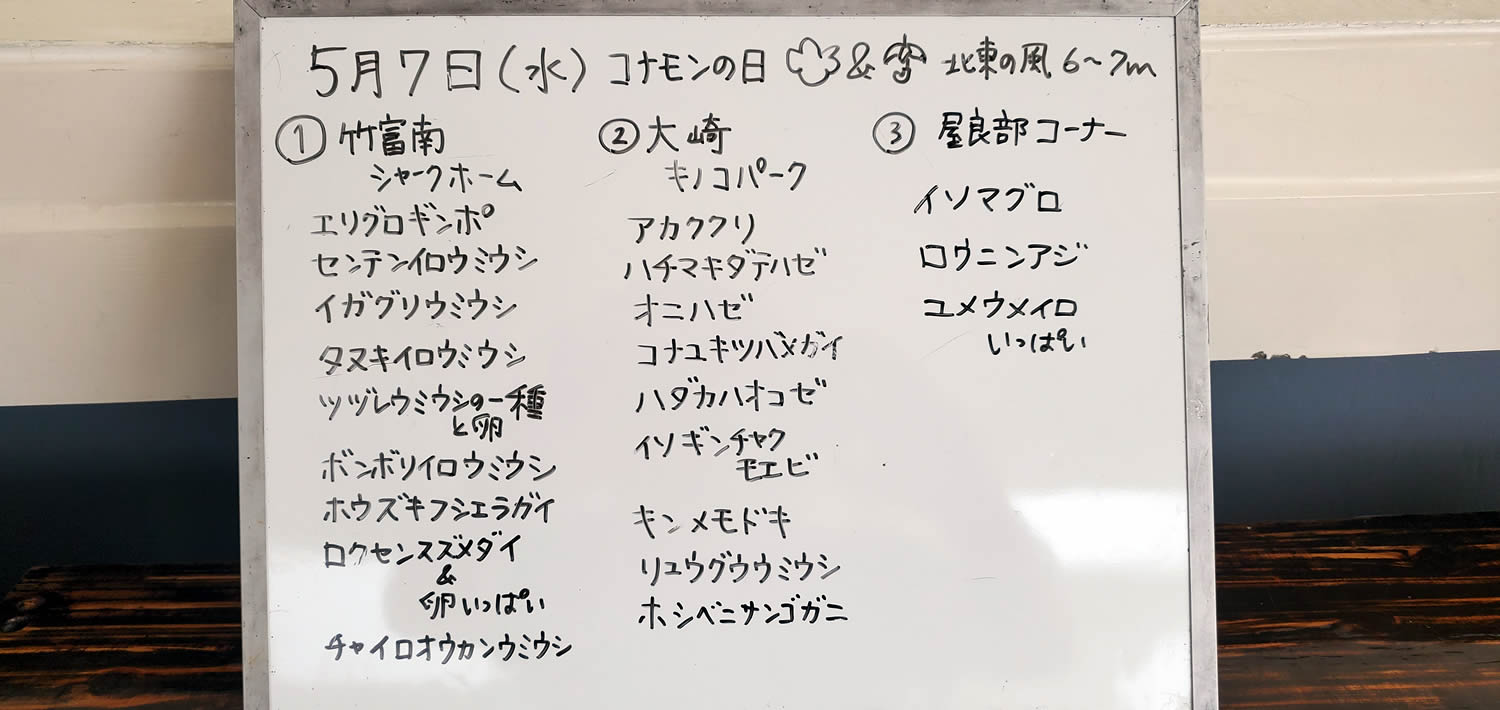 5月7日(水) コナモンの日 & 北東の風 6〜7m
① 竹富南
シャークホーム
エリグロギンポ
センテンイロウミウシ
イガグリウミウシ
タヌキイロウミウシ
ツヅレウミウシの一種
と卵
ボンボリイロウミウシ
ホウズキフシエラガイ
ロクセンスズメダイ
&
卵いっぱい
チャイロオウカンウミウシ
② 大崎
キノコパーク
アカククリ
ハチマキダテハゼ
オニハゼ
コナユキツバメガイ
ハダカハオコゼ
イソギンチャク
モエビ
キンメモドキ
リュウグウウミウシ
ホシベニサンゴガニ
③ 屋良部コーナー
イソマグロ
ロウニンアジ
ユメウメイロ
いっぱい